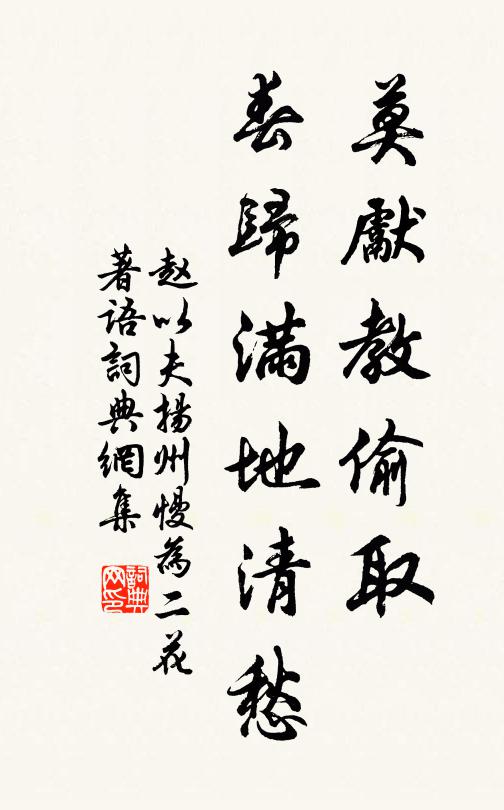 莫獻教偷取
春歸滿地清愁
赵以夫揚州慢為二花
著語詞典網集
詞典网印